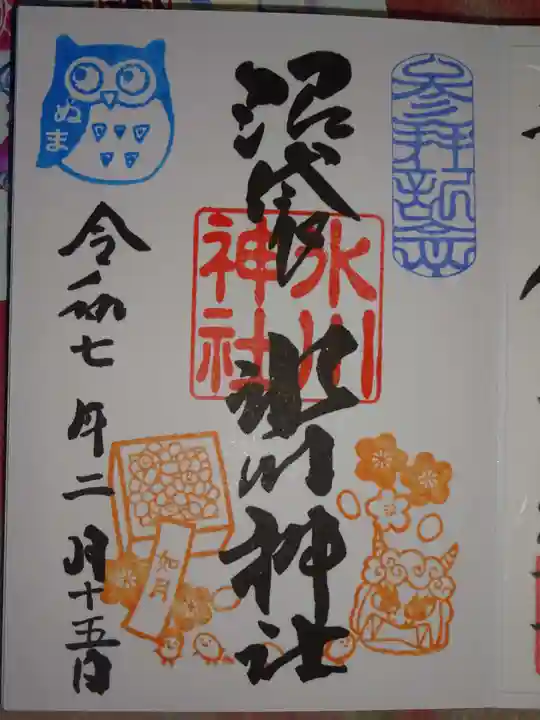 参拝記念
沼袋氷川神社
氷川
神社
ぬま
令和七年二月十五日
如月